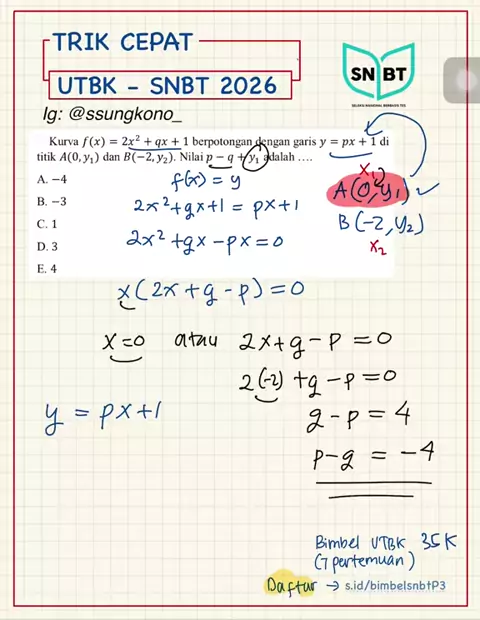 TRIK CEPAT
UTBK – SNBT 2026
SNBT
SELEKSI NASIONAL BERBASIS TES
Ig: @ssungkono_
Kurva f(x) = 2x² + qx + 1 berpotongan dengan garis y = px + 1 di
titik A(0, y₁) dan B(−2, y₂). Nilai p − q + y₁ adalah ….
A. −4
B. −3
C. 1
D. 3
E. 4
f(x) = y
2x² + qx + 1 = px + 1
2x² + qx − px = 0
x₁
A(0, y₁)
B(−2, y₂)
x₂
x(2x + q − p) = 0
x = 0 atau 2x + q − p = 0
2(−2) + q − p = 0
y = px + 1
q − p = 4
p − q = −4
Bimbel UTBK 35K
(7 pertemuan)
Daftar → s.id/bimbelsnbtP3